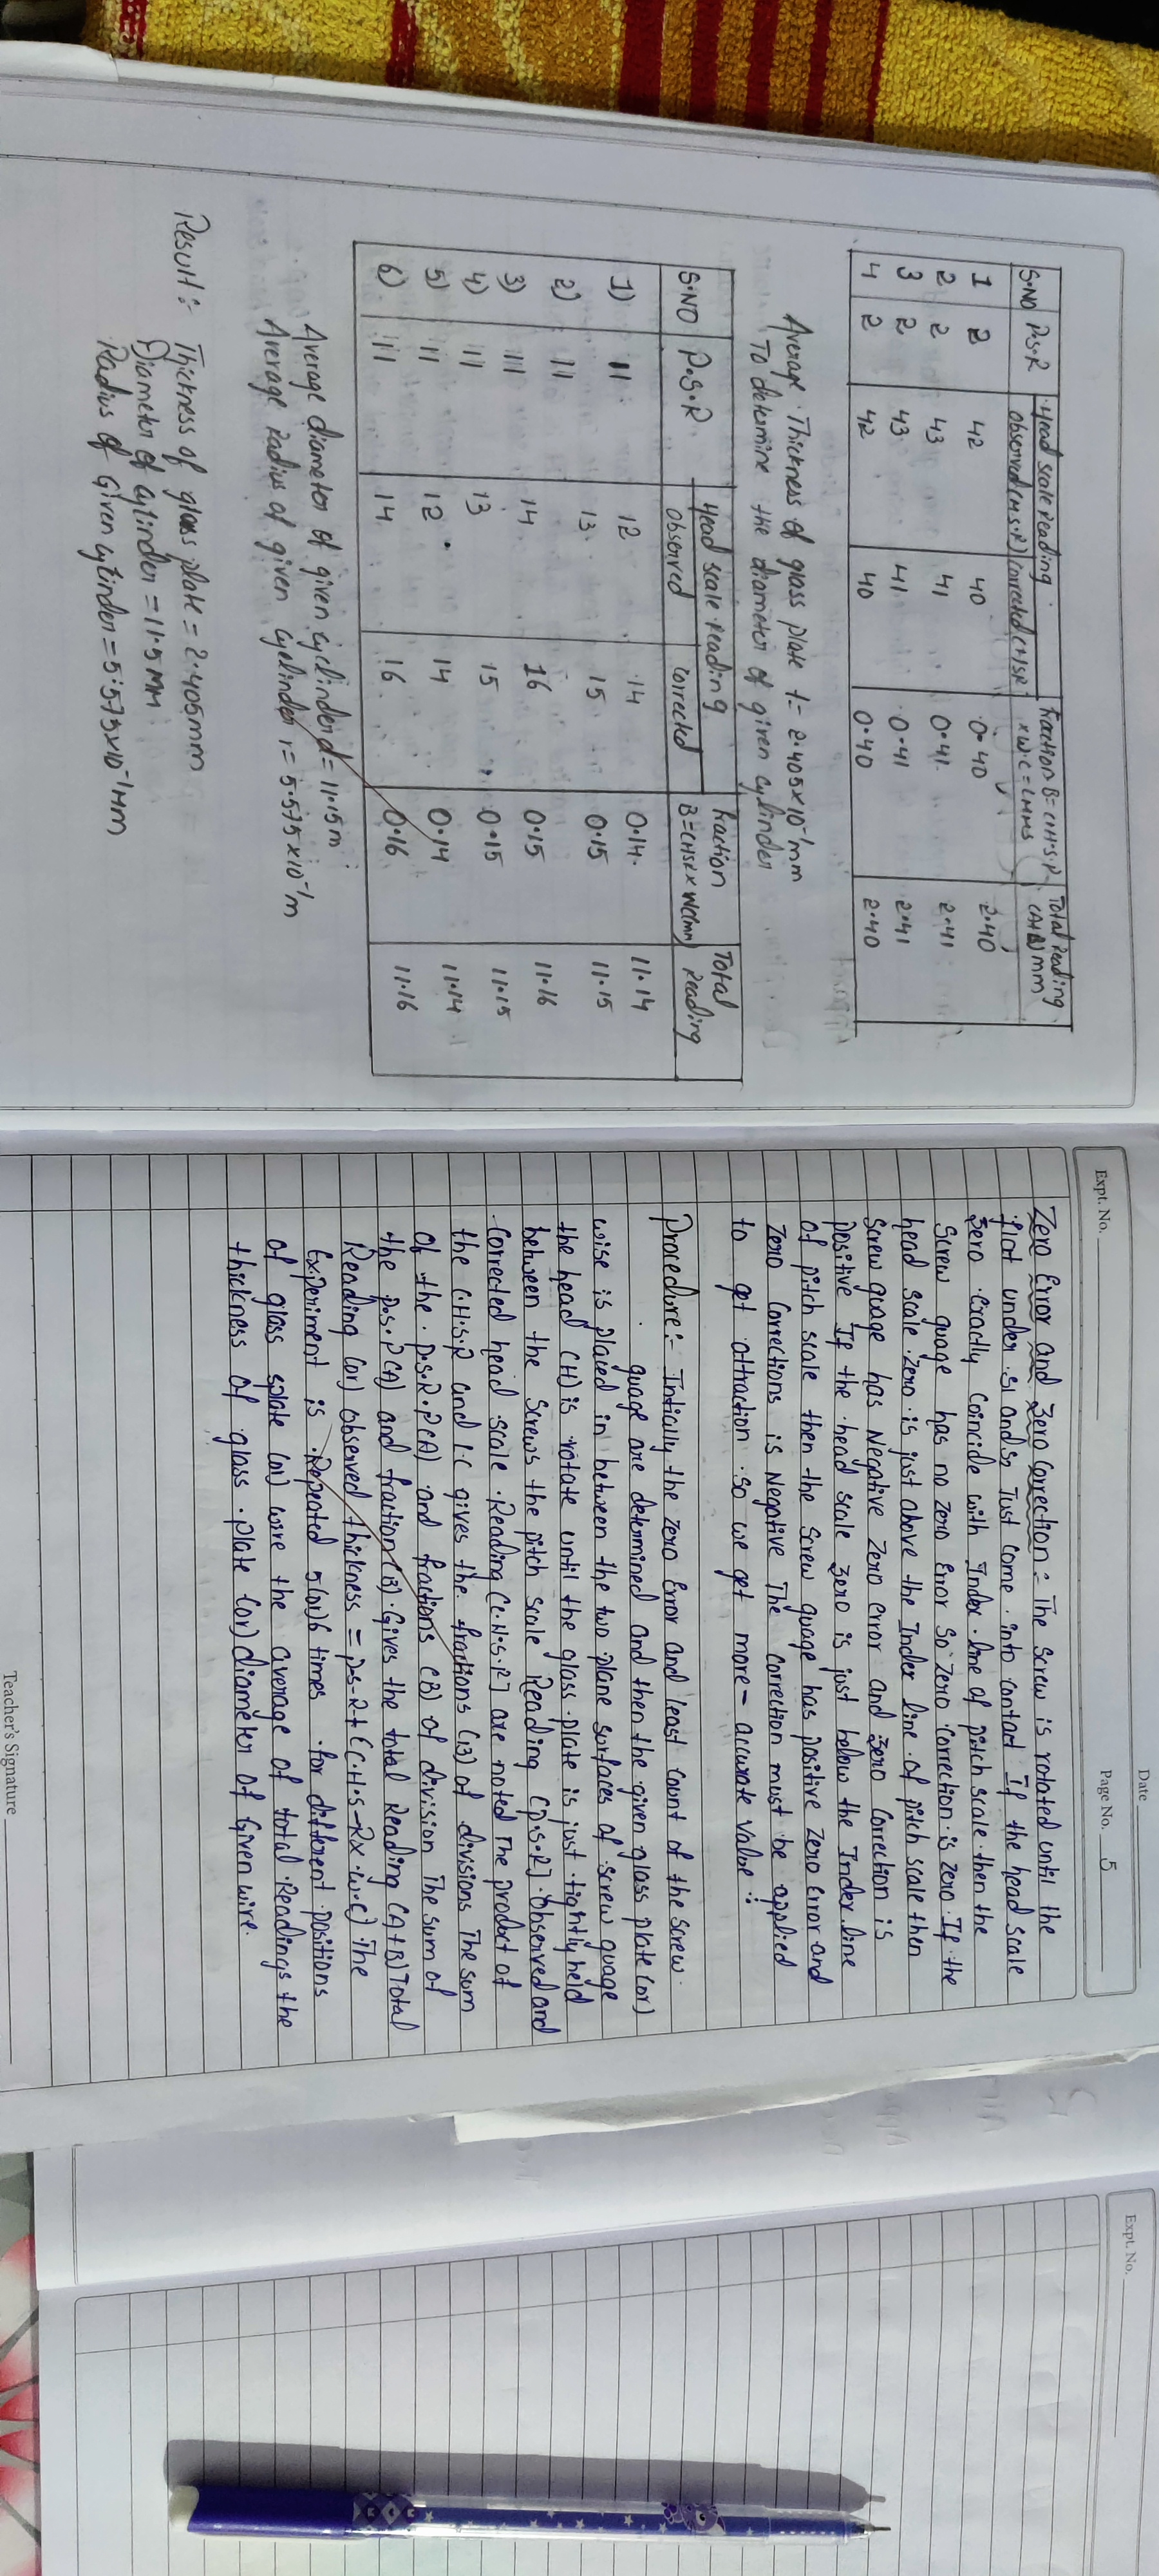 S.NO P.S.R Head scale Reading Fraction B=CH.S.R Total Reading
observed (H.S.R) Corrected CHSR (A+B) mm
1 2 42 40 0.40 2.40
2 2 43 41 0.41 2.41
3 2 43 41 0.41 2.41
4 2 42 40 0.40 2.40
Average Thickness of glass plate t = 2.405x10⁻¹mm
To determine the diameter of given cylinder
S.NO P.S.R Head scale Reading fraction Total
observed corrected B=CHSR x Reading
1) 11 12 14 0.14 11.14
2) 11 13 15 0.15 11.15
3) 11 14 16 0.15 11.16
4) 11 13 15 0.15 11.15
5) 11 12 14 0.14 11.14
6) 11 14 16 0.16 11.16
Average diameter of given cylinder d = 11.15m
Average radius of given cylinder r = 5.575x10⁻¹m
Result :- Thickness of glass plate = 2.405mm
Diameter of cylinder = 11.5mm
Radius of given cylinder = 5.575x10⁻¹mm
Expt. No.
Date
Page No. 5
Zero Error and Zero Correction :- The screw is rotated until the
flat under S1 and S2 Just come into contact If the head scale
Zero exactly Coincide with Index line of pitch scale then the
Screw guage has no zero Error so zero correction is zero. If the
head scale zero is just above the Index line of pitch scale then
screw guage has Negative zero error and zero correction is
positive If the head scale zero is just below the Index line
of pitch scale then the Screw guage has positive zero Error and
Zero Corrections is Negative The correction must be applied
to get attraction so we get more - accurate value :
Procedure:- Intially the zero Error and least Count of the screw
guage are determined and then the given glass plate (or)
wise is placed in between the two plane surfaces of screw guage
the head (H) is rotate until the glass plate is just tightly held
between the screws the pitch scale Reading [P.S.R] observed and
Corrected head scale Reading [C.H.S.R] are noted The product of
the C.H.S.R and L.C gives the fractions (B) of divisions The sum
of the P.S.R.P(A) and fractions (B) of division The sum of
the P.S.P(A) and fraction (B) Gives the total Reading (A+B) Total
Reading (or) observed thickness = P.S-R+(C.H.S-Rx.W.C) The
Experiment is Repeated 5(or)6 times for different positions
of glass splate (or) wire the average of total Readings the
thickness of glass plate (or) diameter of Given wire.
Teacher's Signature
Expt. No.